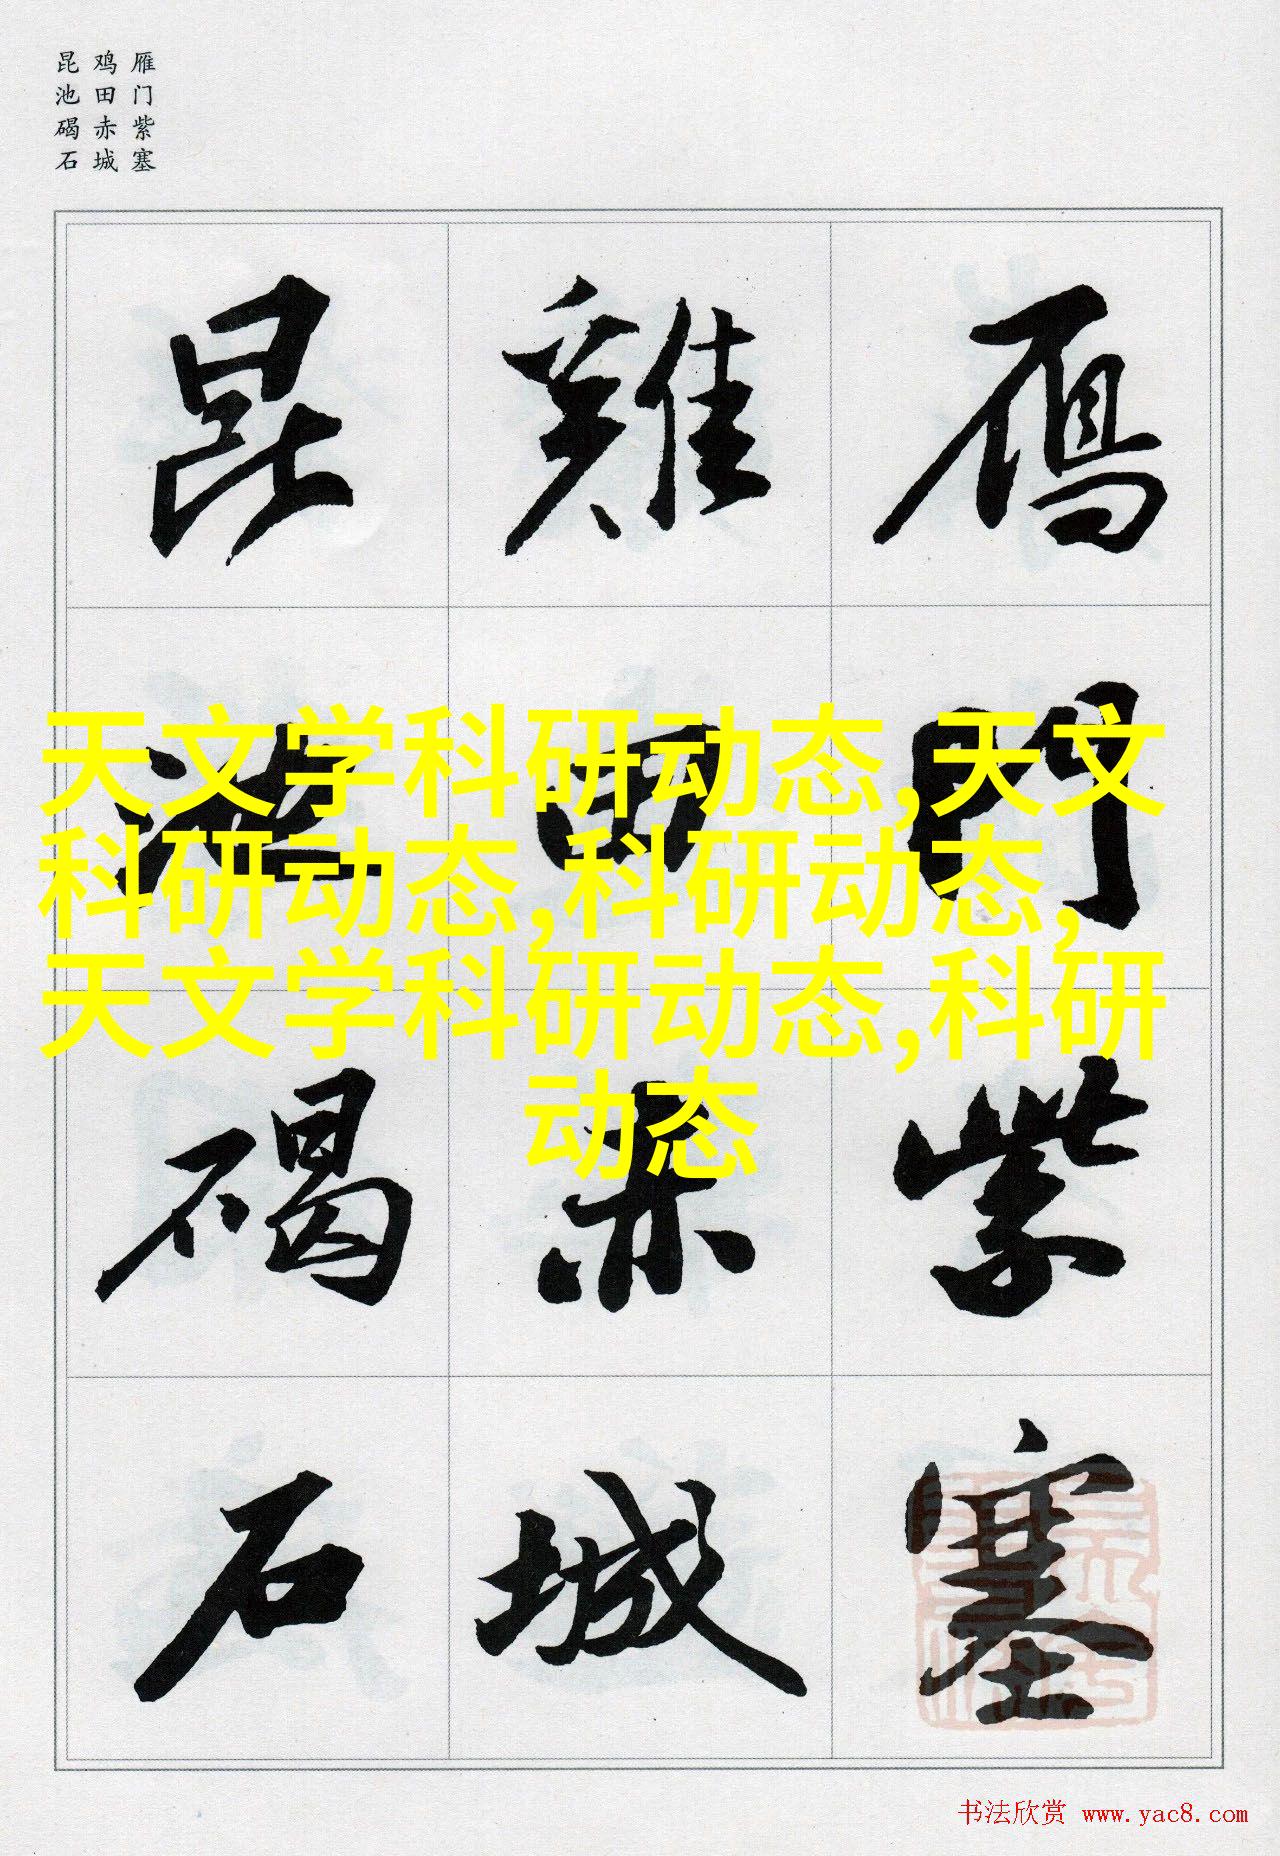 雁门紫塞
鸡田赤城
昆池碣石
鴈門紫塞
雞田赤城
昆池碣石
天文学科研动态,天文
科研动态,科研动态,
天文学科研动态,科研
动态
书法欣赏 www.yac8.com